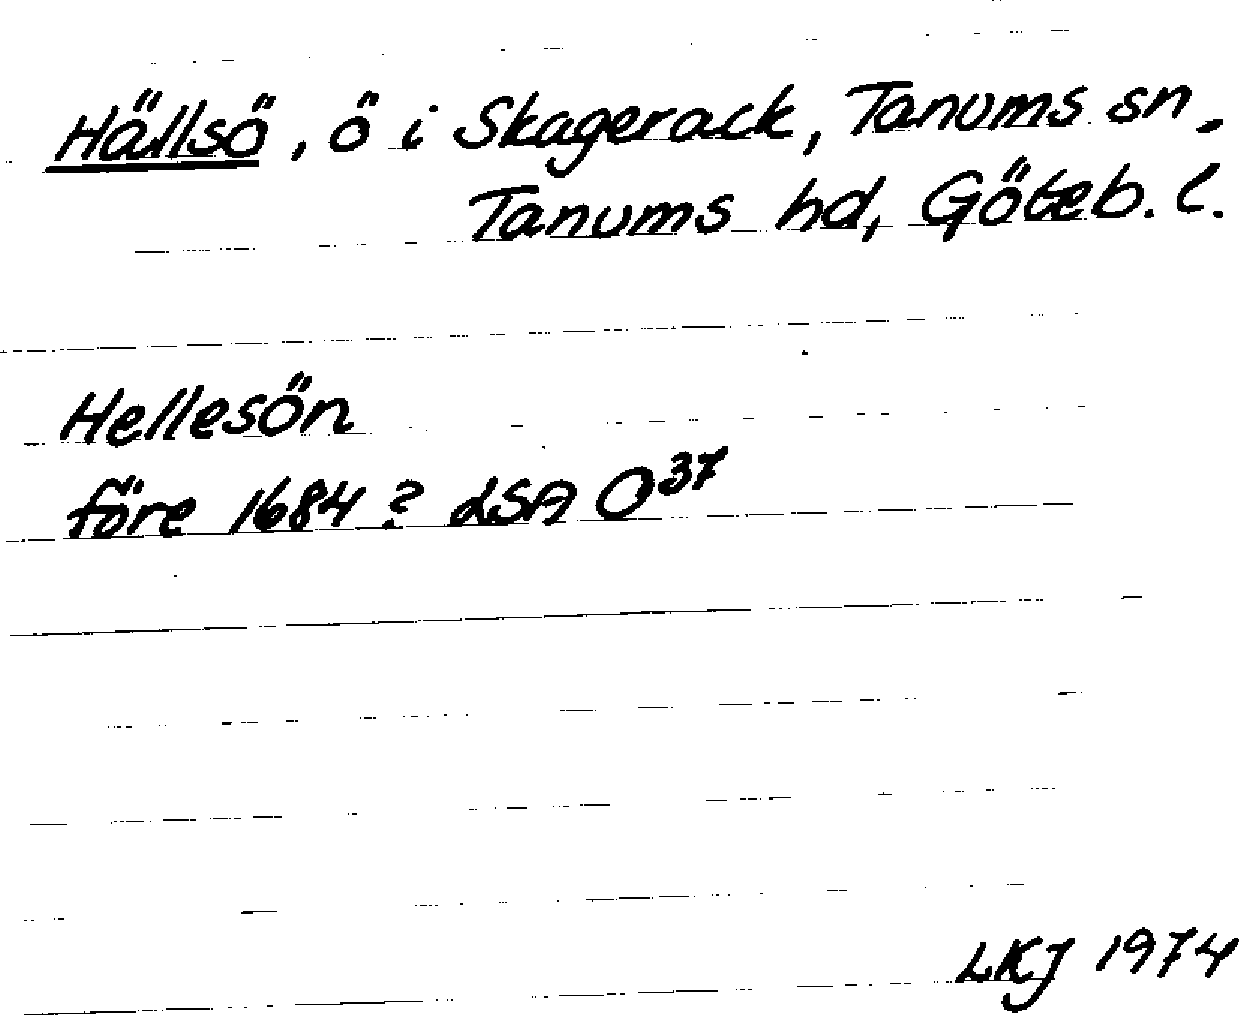 Hällsö, ö i Skagerack, Tanums sn.
Tanums hd, Göteb. l.
Hellesön
före 1684? LSA O³⁷
LKJ 1974